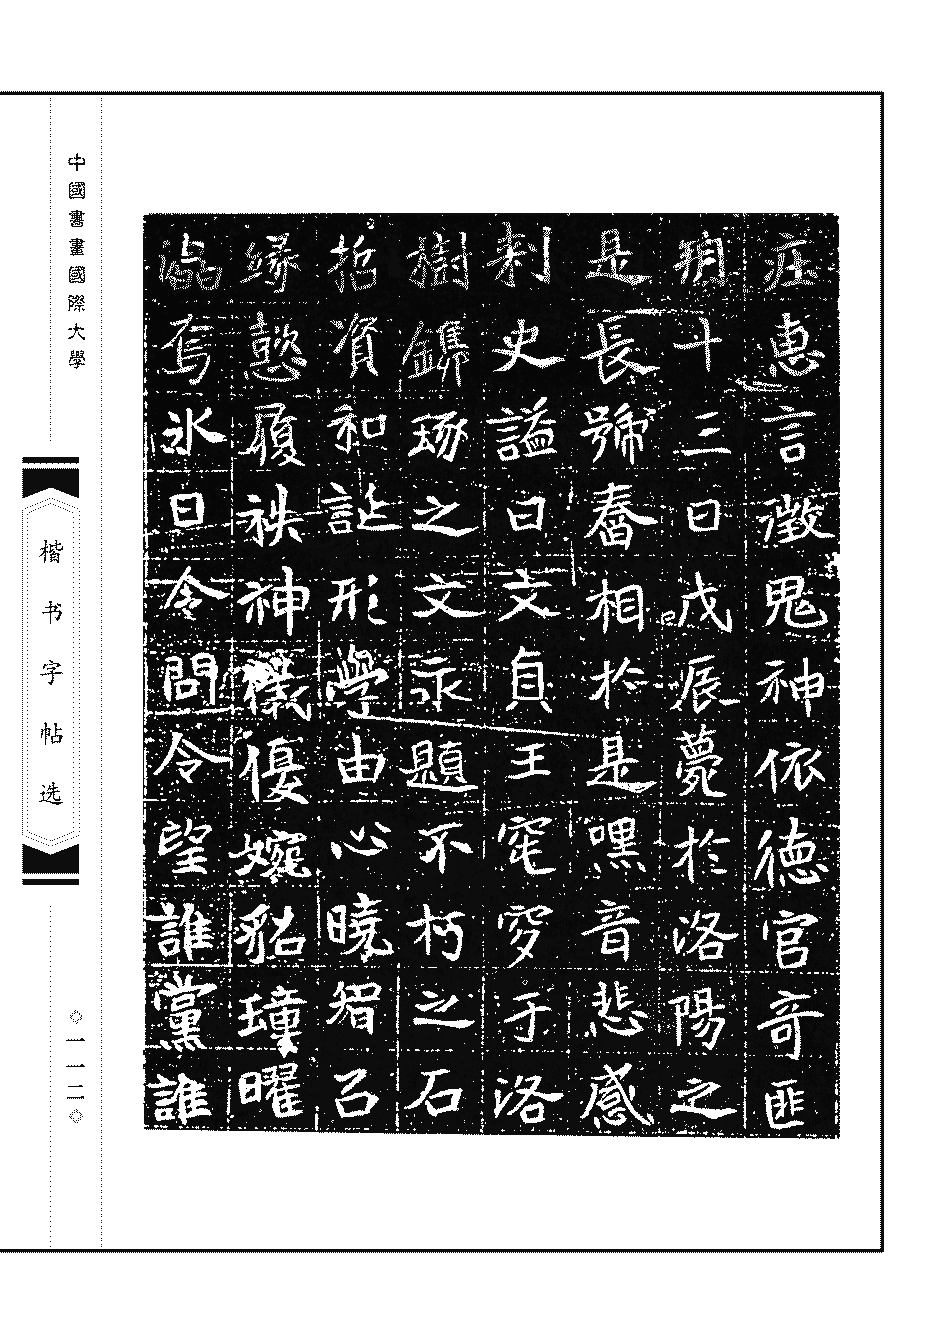 惠言徵鬼神依德官奇匪
十三日戊辰薨於洛陽之
是長號舂相於是嘿音悲感
刺史謚曰文貞王窀穸于洛
樹鐫琢之文永題不朽之石
哲資和誕形學由心曉智召
緣懿履袟神儀優婉貂璫曜
氷日令問令望誰黨誰
中國書畫國際大學
楷书字帖选
◇一一二◇